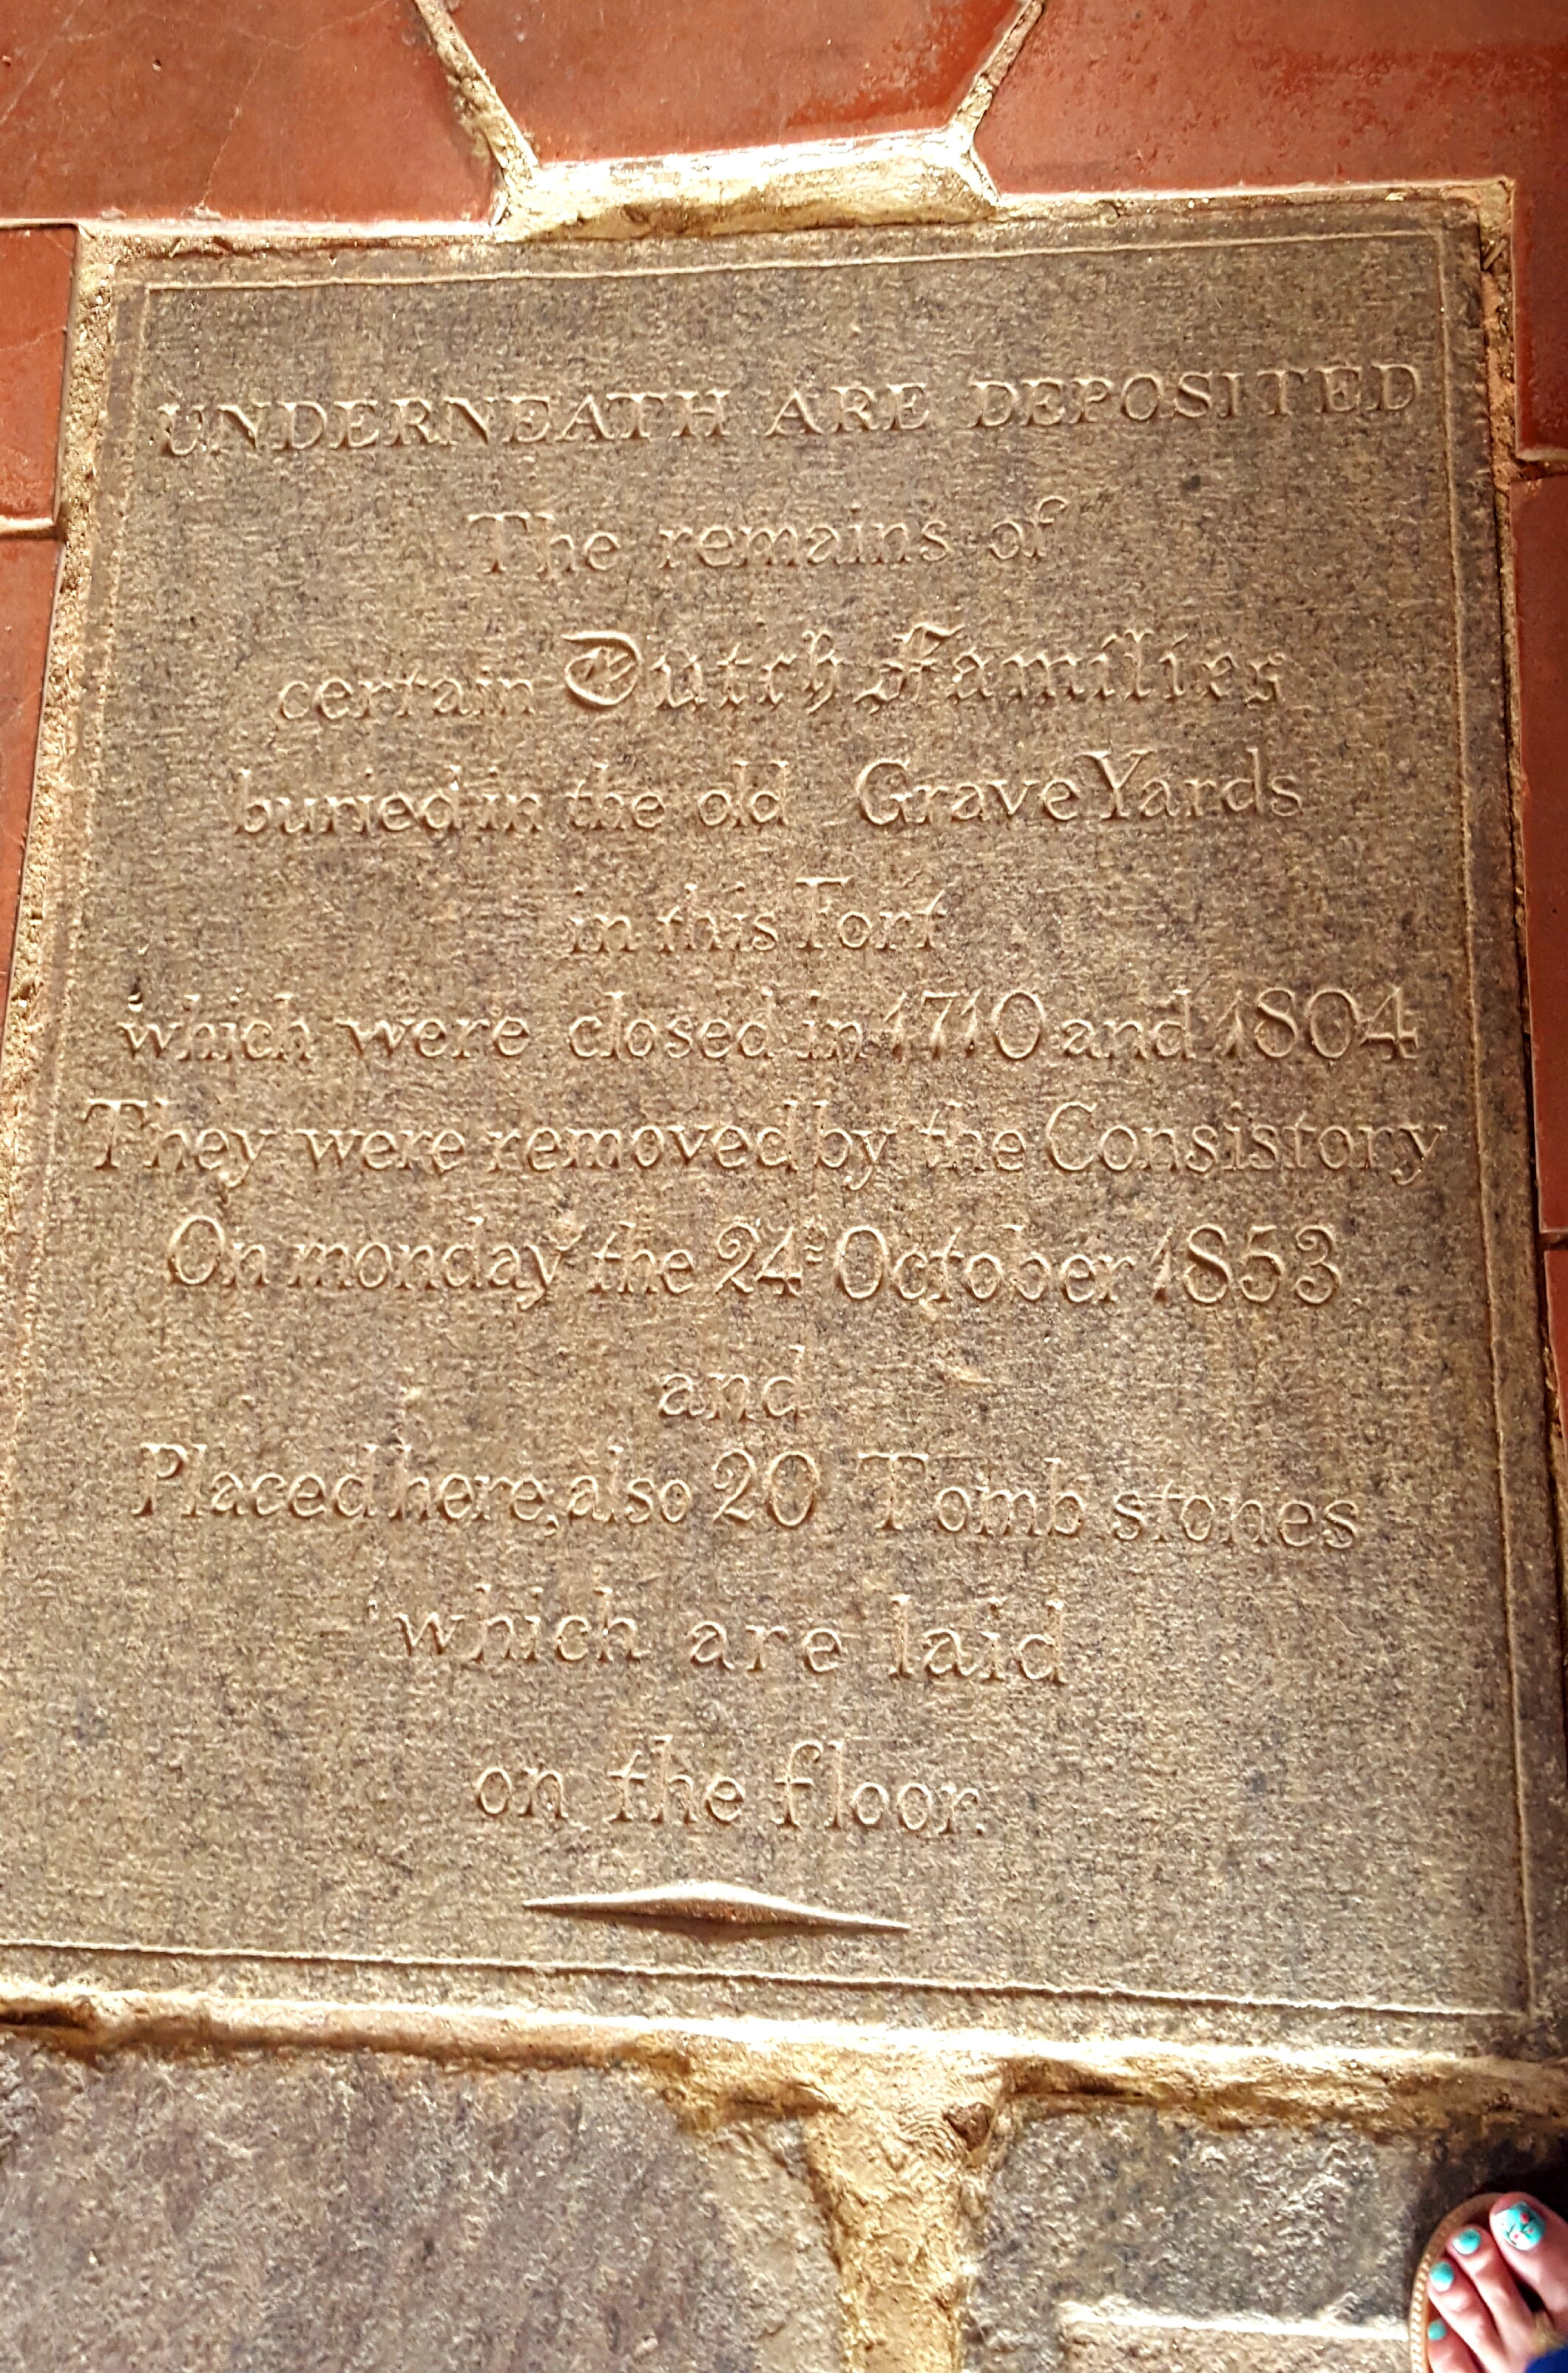 UNDERNEATH ARE DEPOSITED
The remains of
certain Dutch Families
buried in the old Grave Yards
in this Fort
which were closed in 1710 and 1804
They were removed by the Consistory
On monday the 24th October 1853
and
Placed here, also 20 Tomb stones
which are laid
on the floor.